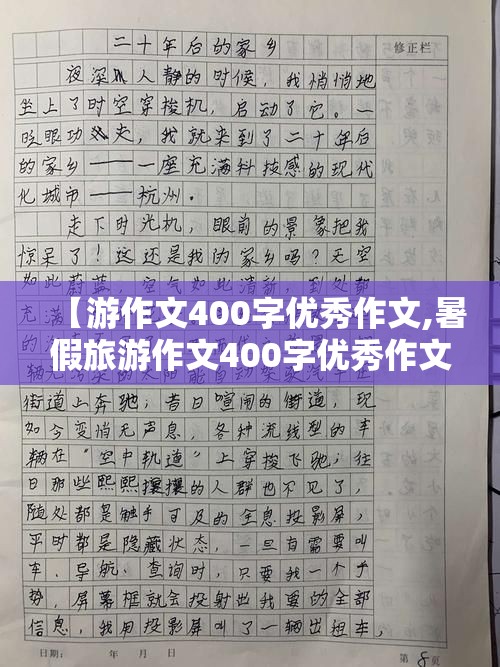 二十年后的家乡
修正栏
夜深人静的时候，我悄悄地
坐上了时空穿梭机，启动了它。一
眨眼功夫，我就来到了二十年后
的家乡——一座充满科技感的现代
化城市——杭州。
走下时光机，眼前的景象把我
惊呆了！这还是我的家乡吗？天空
如此蔚蓝，空气如此清新，到处都
充满
【游作文400字优秀作文,暑
假旅游作文400字优秀作文
街道上奔驰；昔日喧闹的街道，现
如今变悄无声息，各种流线型的车
辆在“空中轨道”上穿梭飞驰；往
日那些熙熙攘攘的人群也不见了，
随处都是触手可及的全息投影屏，
平时都是隐藏状态，一旦有需要叫
车、导航、查询时，只要我一个手
势，屏幕框就会投射出我要的全部
信息，我用投影屏叫了一辆出租车，
日期： 年 月 日
第 8 页